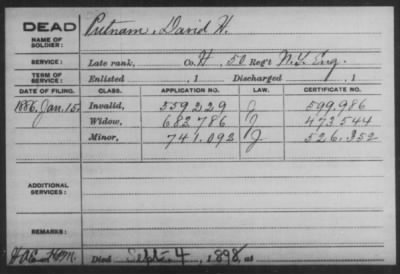 DEAD
NAME OF SOLDIER: Putnam, David H.
SERVICE: Late rank, Co. H, 50 Reg't N.Y. Eng.
TERM OF SERVICE: Enlisted , 1 Discharged , 1
DATE OF FILING. CLASS. APPLICATION NO. LAW. CERTIFICATE NO.
1886, Jan. 15. Invalid, 559229 J 599,986
Widow, 682786 J 473544
Minor, 741.092 J. 526.352
ADDITIONAL SERVICES:
REMARKS:
Died Sept. 4, 1898, at